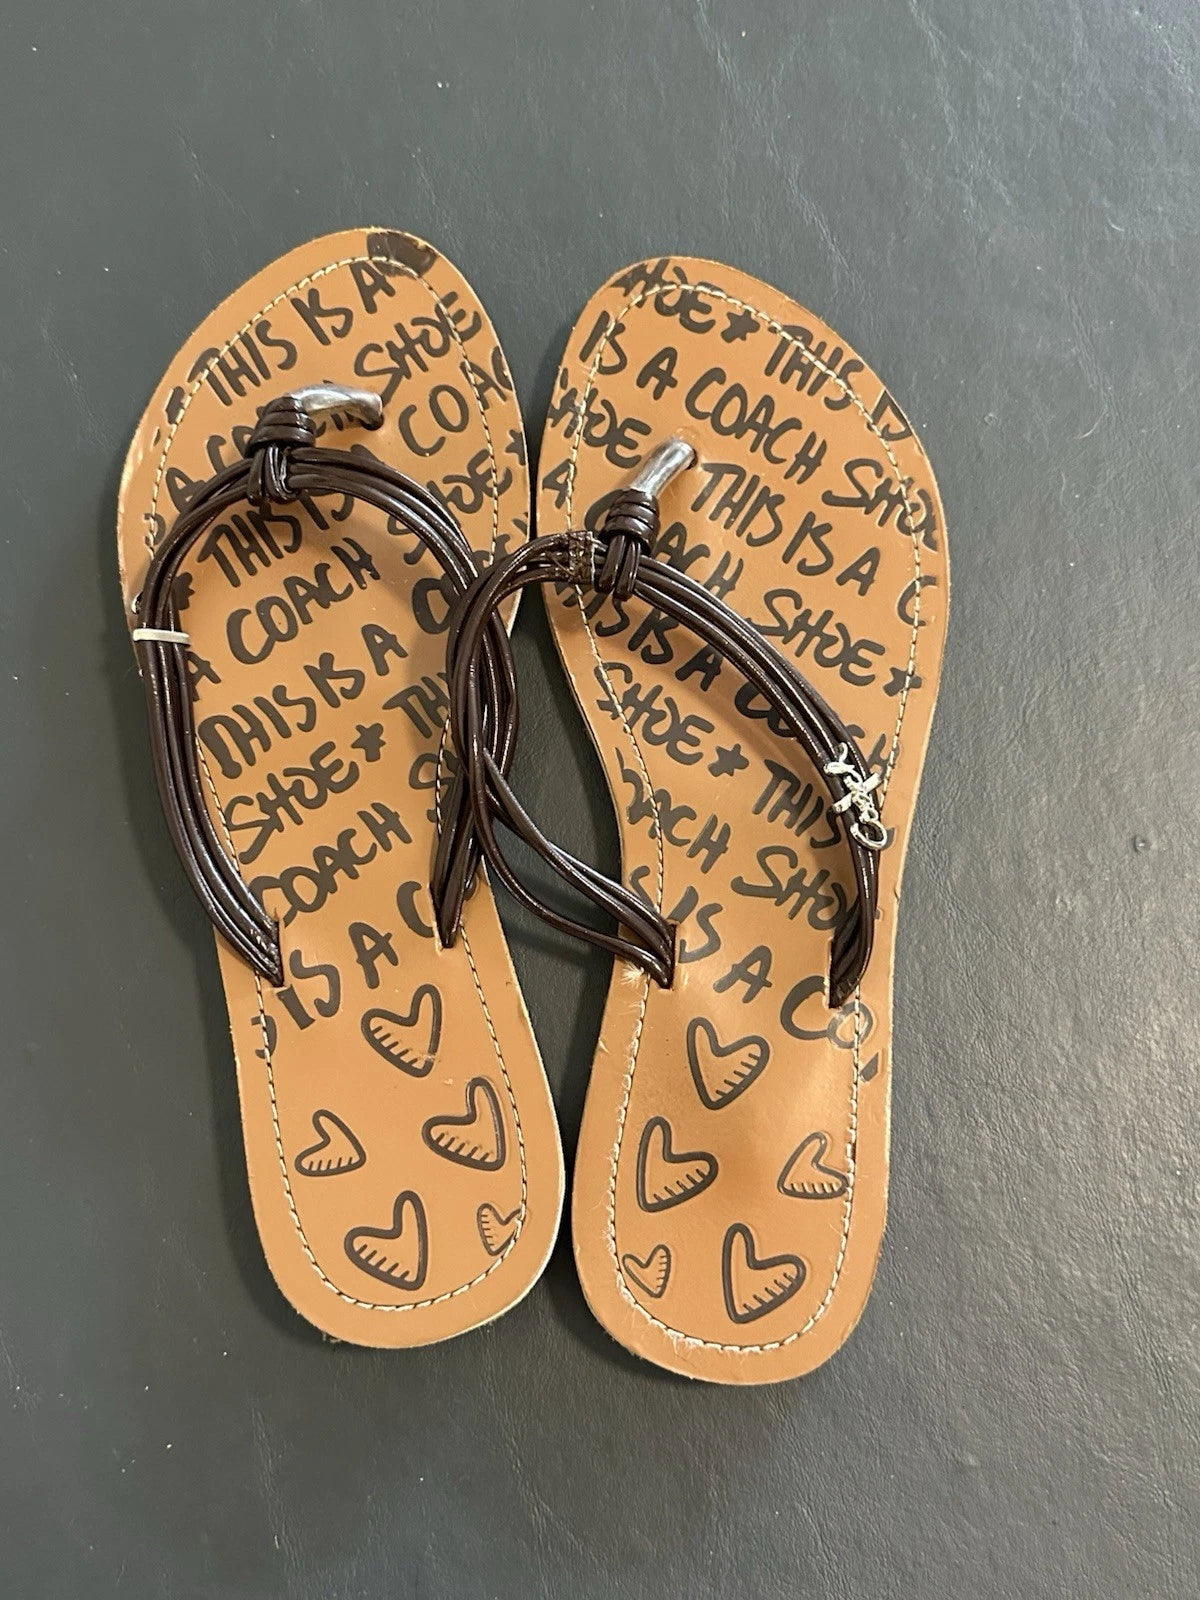 THIS IS A
SHOE
A COACH
THIS IS
SHOE*
A COACH
THIS IS A
SHOE * TH
COACH
IS A C
SHOE * THIS IS
IS A COACH SHOE
SHOE * THIS IS A C
A COACH SHOE *
THIS IS A COACH
SHOE * THIS
COACH SHOE
IS A CO